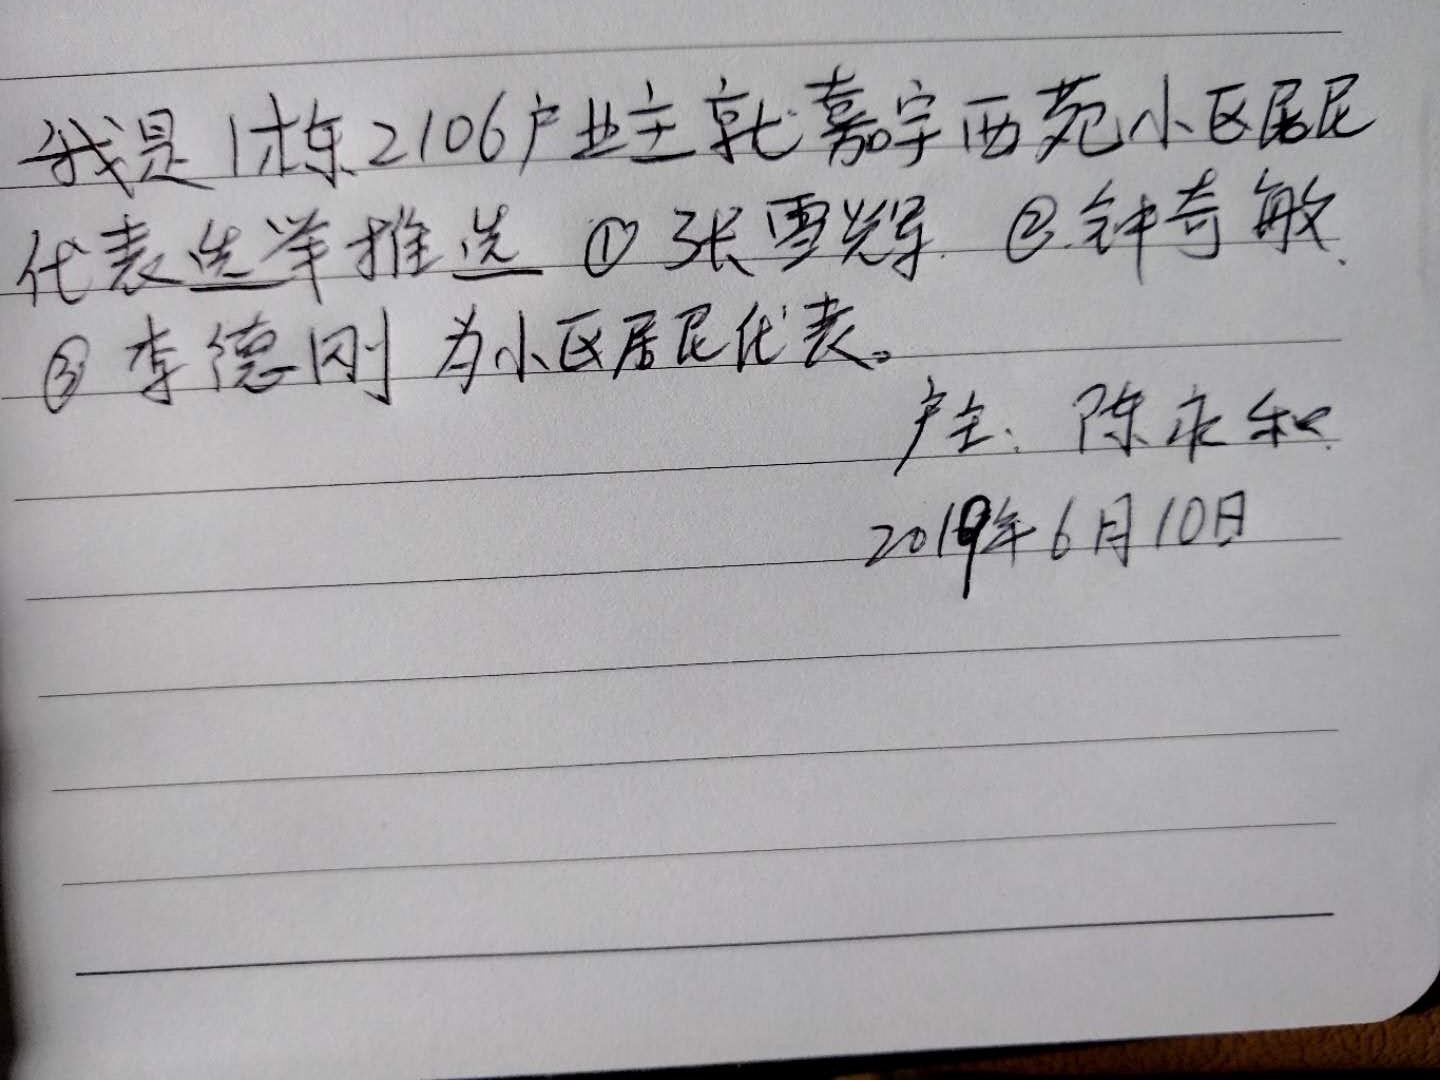 我是1栋2106户业主就嘉宇西苑小区居民
代表选举推选①张雪辉.②钟奇敏.
③李德刚为小区居民代表。
户主:陈永和.
2019年6月10日